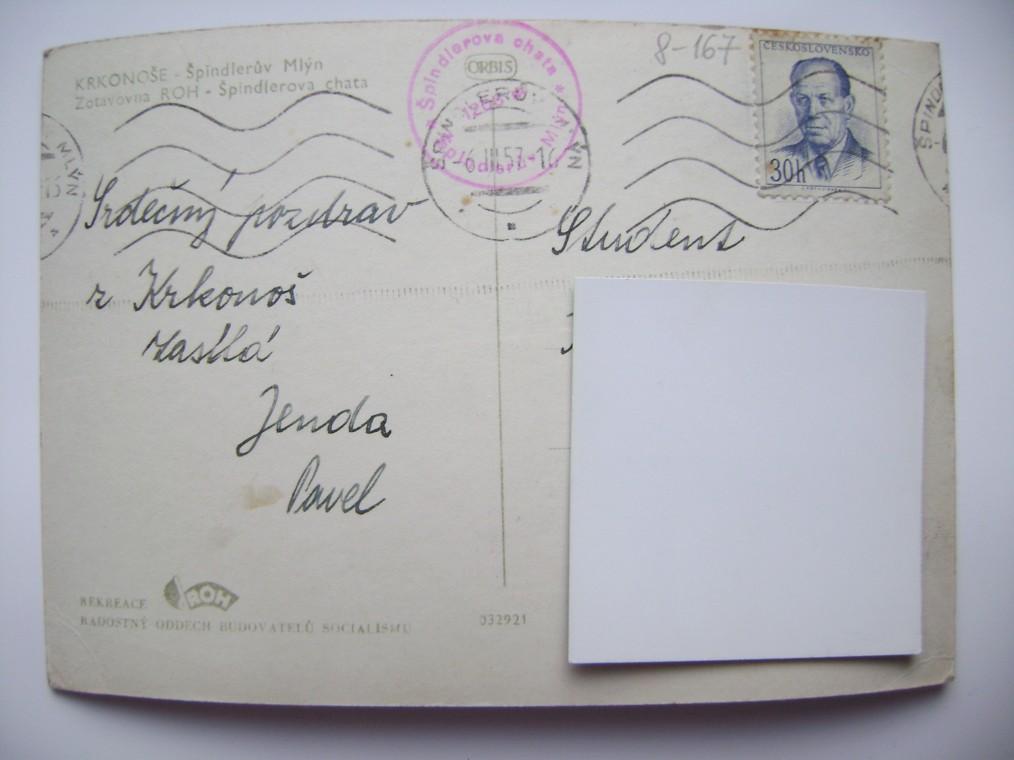 KRKONOŠE - Špindlerův Mlýn
Zotavovna ROH - Špindlerova chata
ORBIS
Špindlerova chata
Mlýn
8-167
ČESKOSLOVENSKO
30h
MLÝN
-6.III.57-16
Srdečný pozdrav
z Krkonoš
zasílá
Jenda
Pavel
Student
REKREACE ROH
RADOSTNÝ ODDECH BUDOVATELŮ SOCIALISMU
032921